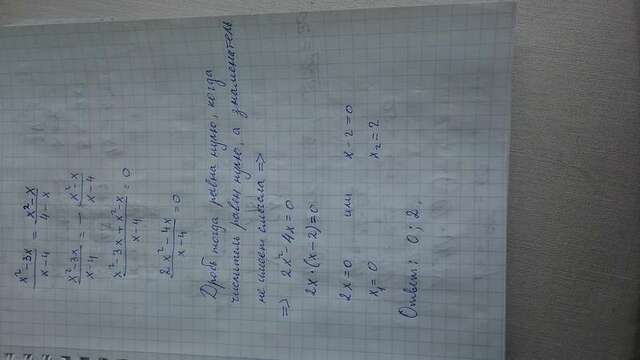 x²-3x / x-4 = x²-x / 4-x
x²-3x / x-4 = - x²-x / x-4
x²-3x+x²-x / x-4 = 0
2x²-4x / x-4 = 0
Дробь тогда равна нулю, когда
числитель равен нулю, а знаменатель
не имеет смысла =>
=> 2x²-4x=0
2x·(x-2)=0
2x=0 или x-2=0
x₁=0 x₂=2
Ответ: 0; 2.